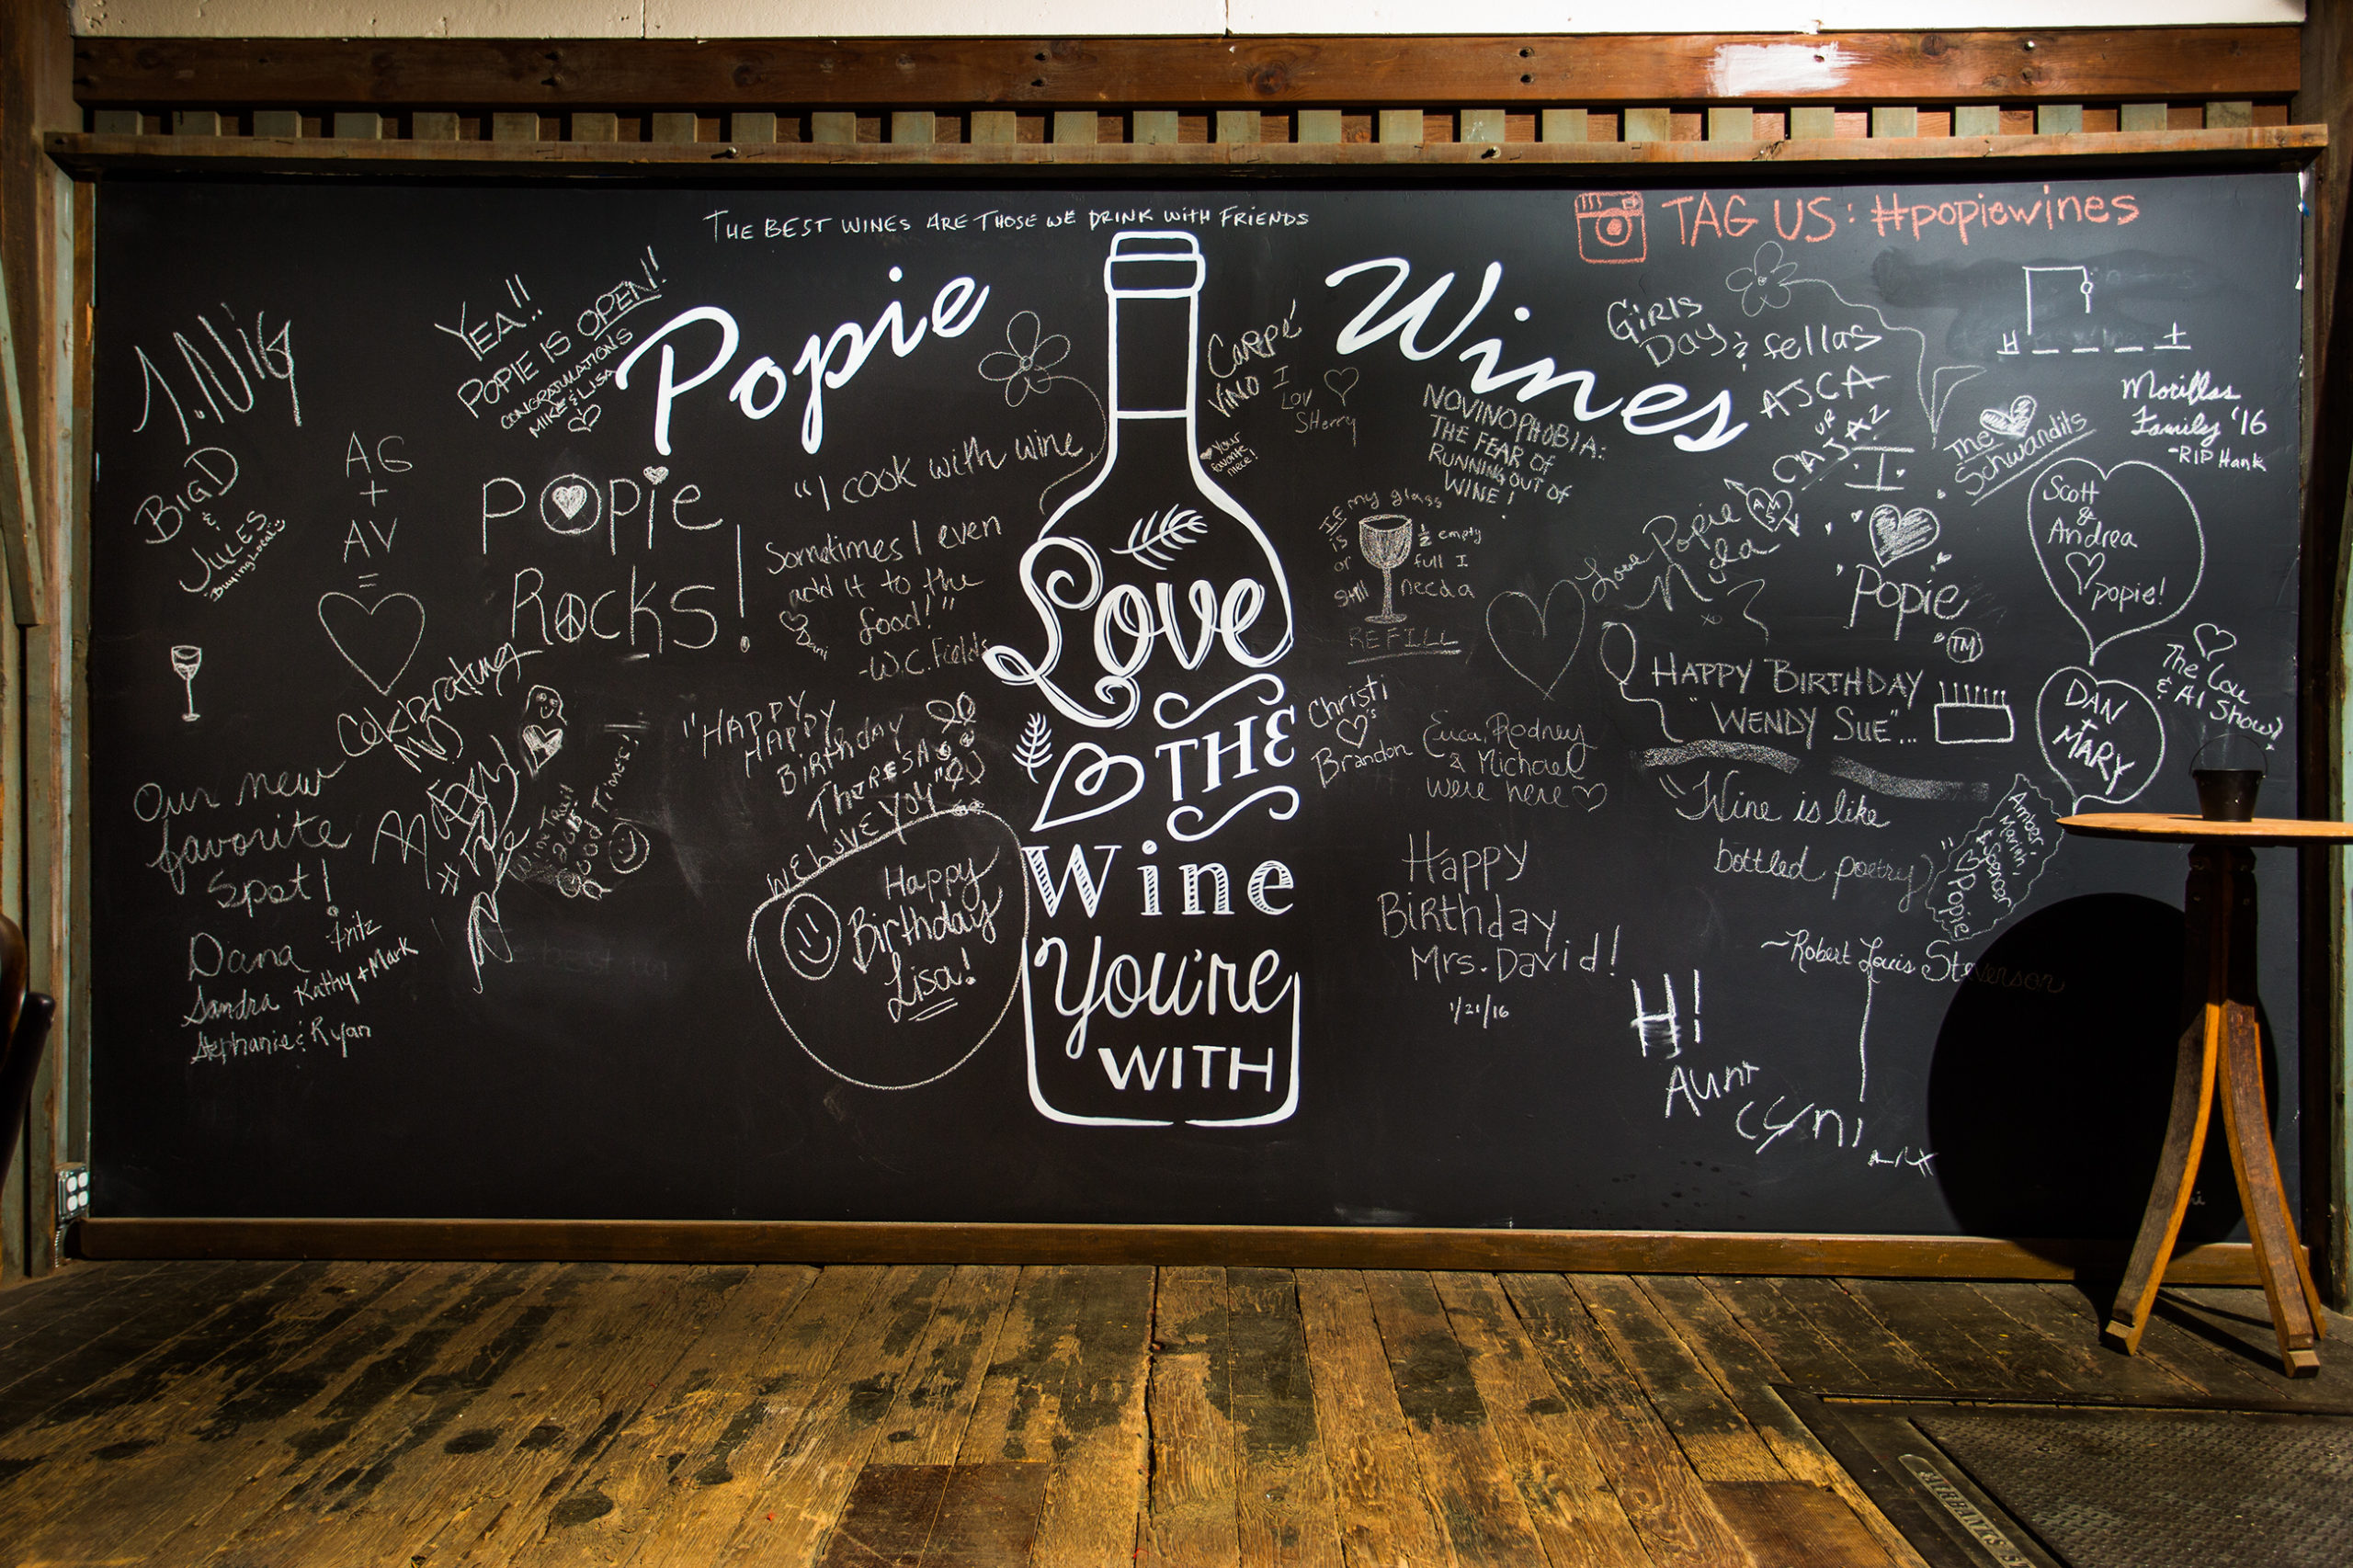 THE BEST WINES ARE THOSE WE DRINK WITH FRIENDS
TAG US: #popiewines
Popie
Wines
Love
THE
Wine
You're
WITH
J.NiG
BIG D
&
JULES
Buying Local
AG
+
AV
=
YEA!!
POPIE IS OPEN!!
CONGRATULATIONS
MIKE & LISA
POPie
Rocks!
"I cook with wine
Sometimes I even
add it to the
food!"
-W.C. Fields
Celebrating
Our new
favorite
Spot!
Dana Fritz
Sandra Kathy + Mark
Stephanie & Ryan
Wine Trail
2015
Good Times!
"HAPPY
HAPPY
Birthday
THERESA
WE LOVE YOU"
Happy
Birthday
Lisa!
Carpé
Vino
I
Lov
SHerry
Your
favorite
niece!
NOVINOPHOBIA:
THE FEAR OF
RUNNING OUT OF
WINE!
If my glass
is ½ empty
or full I
still need a
REFILL
Christi
♡'s
Brandon
Erica, Rodney
& Michael
were here
Happy
Birthday
Mrs. David!
1/21/16
GirLs
Day & fellas
AJCA
UR
CAJAZ
AMS
Love Popie
Nyla
xo
I
Popie
TM
HAPPY BIRTHDAY
"WENDY SUE"...
"Wine is like
bottled poetry"
~Robert Louis Stevenson
H!
Aunt
Cyni
H
t
The
Schwandt's
Morillas
Family '16
-RIP Hank
Scott
&
Andrea
♡ popie!
The Lou
& Al Show!
DAN
+
MARY
Amber,
Marian,
& Spencer
♡ Popie